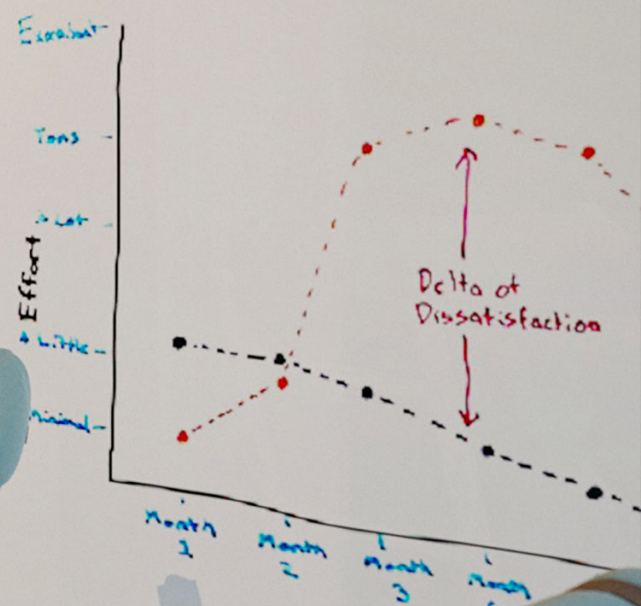 Tons
A Lot
Effort
A Little
Minimal
Delta of
Dissatisfaction
Month
1
Month
2
Month
3
Month